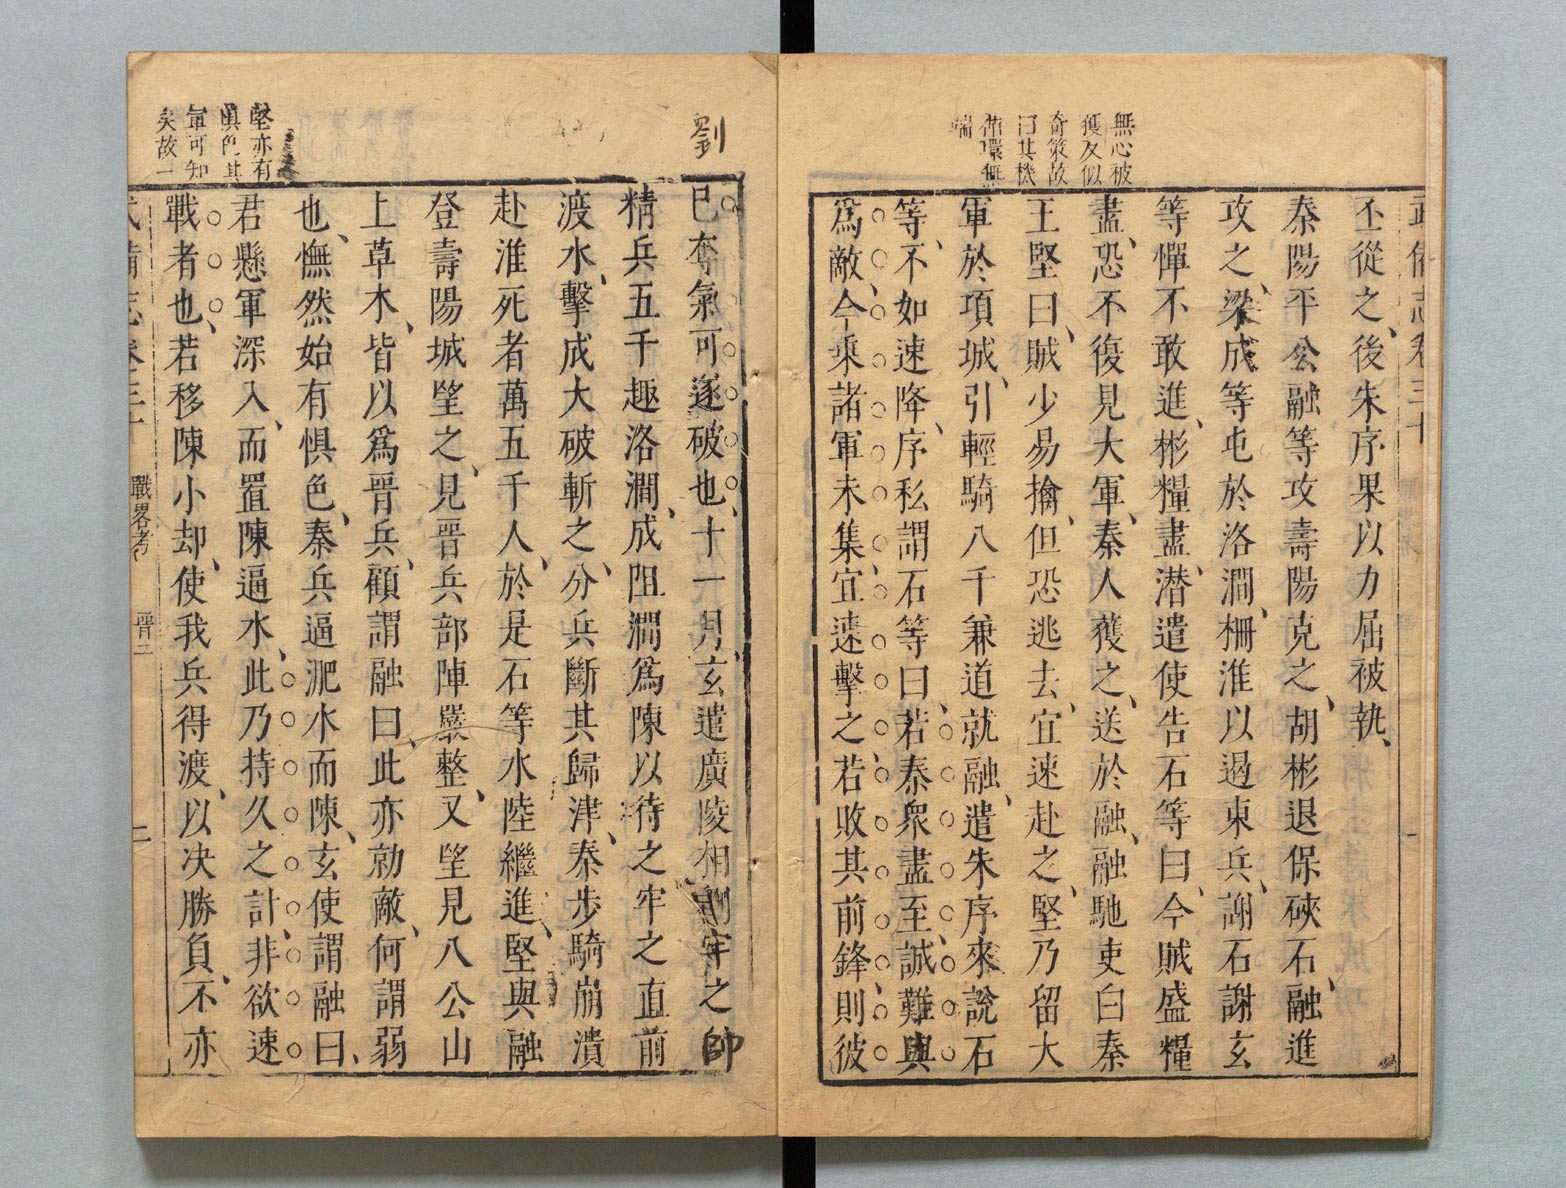 無心被
獲反似
奇策故
曰其機
循環無
端
武備志卷三十
丕從之後朱序果以力屈被執
秦陽平公融等攻壽陽克之胡彬退保硤石融進
攻之梁成等屯於洛澗柵淮以遏東兵謝石謝玄
等憚不敢進彬糧盡潜遣使告石等曰今賊盛糧
盡恐不復見大軍秦人獲之送於融融馳吏白秦
王堅曰賊少易擒但恐逃去宜速赴之堅乃留大
軍於項城引輕騎八千兼道就融遣朱序來說石
等不如速降序私謂石等曰若秦衆盡至誠難與
爲敵今乘諸軍未集宜速擊之若敗其前鋒則彼
劉
已奪氣可遂破也十一月玄遣廣陵相劉牢之帥
精兵五千趣洛澗成阻澗爲陳以待之牢之直前
渡水擊成大破斬之分兵斷其歸津秦步騎崩潰
赴淮死者萬五千人於是石等水陸繼進堅與融
登壽陽城望之見晉兵部陣嚴整又望見八公山
上草木皆以爲晉兵顧謂融曰此亦勍敵何謂弱
也憮然始有懼色秦兵逼淝水而陳玄使謂融曰
君懸軍深入而置陳逼水此乃持久之計非欲速
戰者也若移陳小却使我兵得渡以决勝負不亦
堅亦有
懼色其
軍可知
矣故一
武備志卷三十 戰畧考 晉二 二